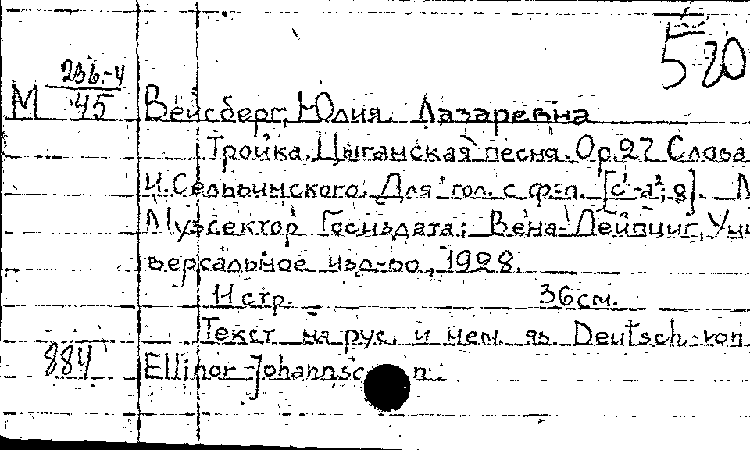 520
М 236-4
45
Вейсберг, Юлия Лазаревна
Тройка. Цыганская песня. Op.27 Слова
И.Сельвинского. Для гол. с ф-п.
Музсектор Госиздата; Вена-Лейпциг, Уни
версальное изд-во, 1928.
11 стр. 36см.
Текст на рус. и нем. яз. Deutsch von
884 Ellinor Johannsc n.